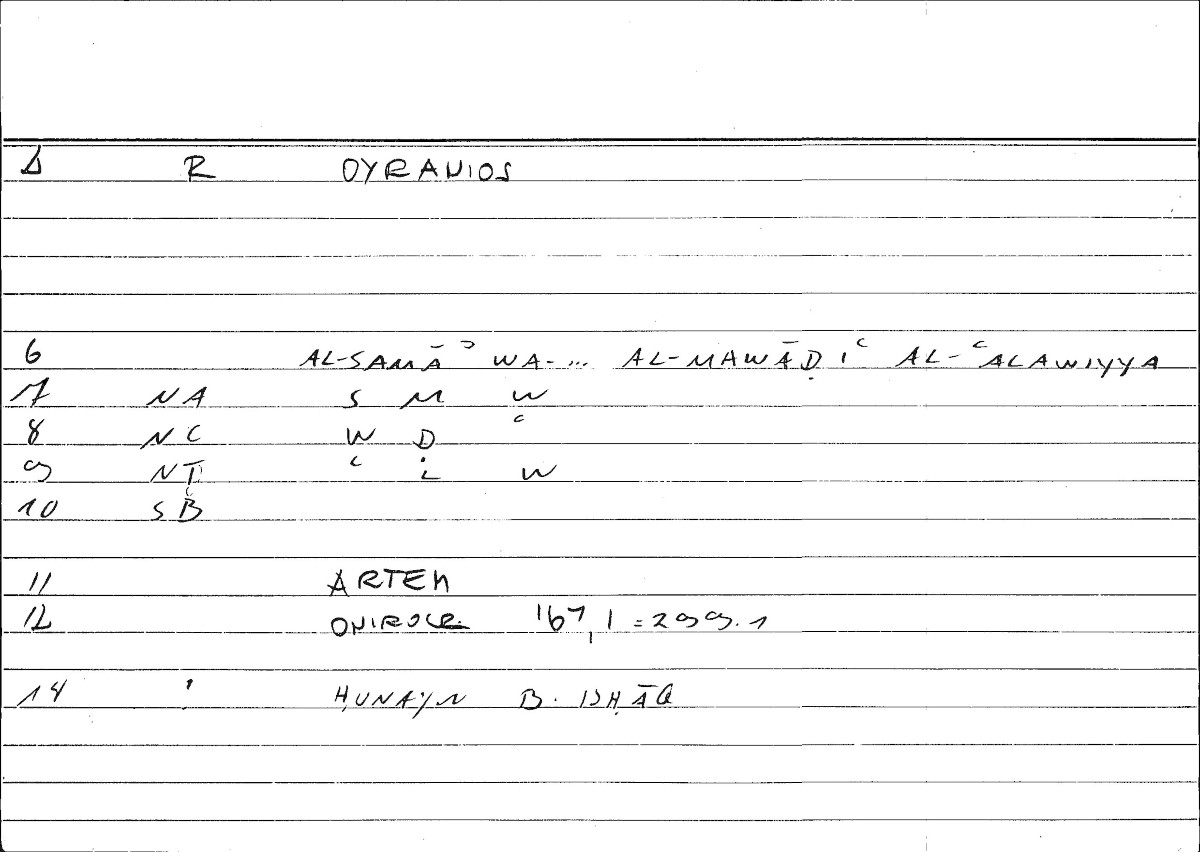 Δ R OYRANIOS
6 AL-SAMĀʾ WA-... AL-MAWĀḌIʿ AL-ʿALAWIYYA
7 NA S M W
8 NC W Ḍ ʿ
9 NT ʿ L W
10 SB
11 ARTEM
12 ONIROCR 167,1=299.1
14 ḤUNAYN B. ISḤĀQ